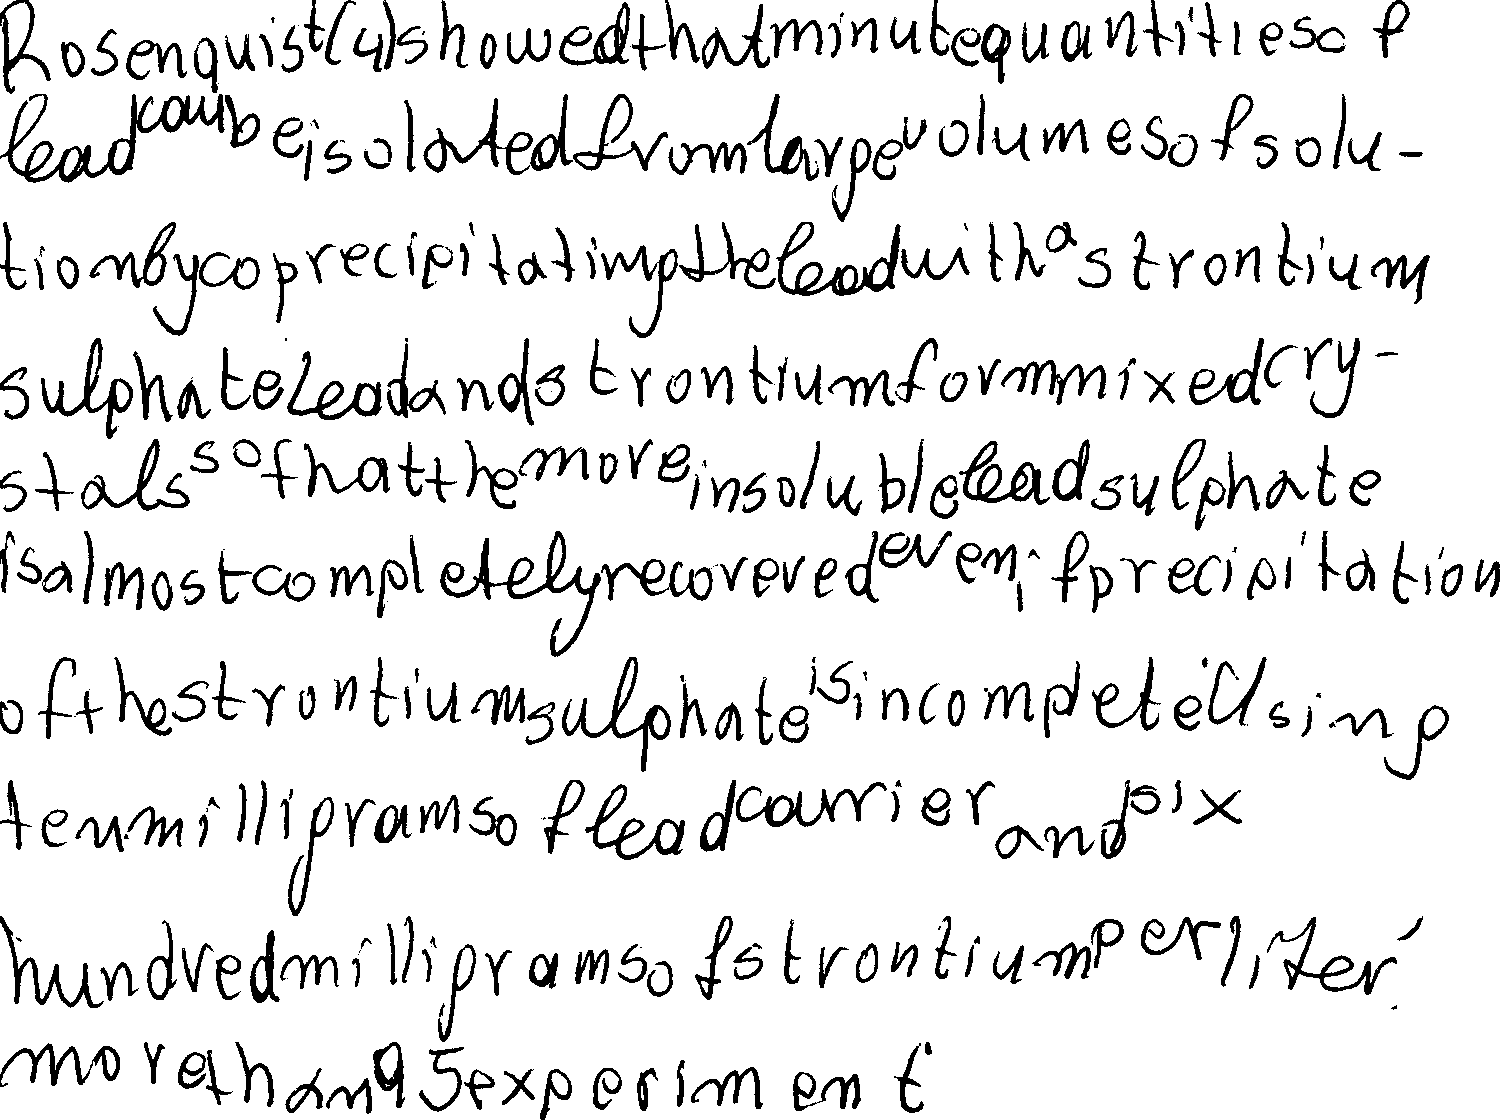 Rosenquist (4) showed that minute quantities of
lead can be isolated from large volumes of solu-
tion by coprecipitating the lead with a strontium
sulphate Lead and strontium form mixed cry-
stals so that the more insoluble lead sulphate
is almost completely recovered even if precipitation
of the strontium sulphate is incomplete. Using
ten milligrams of lead carrier and six
hundred milligrams of strontium per liter,
more than 95 experiment